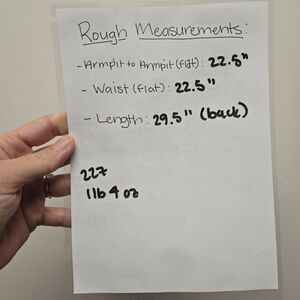 Rough Measurements:
- Armpit to Armpit (Flat): 22.5"
- Waist (Flat): 22.5"
- Length: 29.5" (back)
227
1lb 4 oz